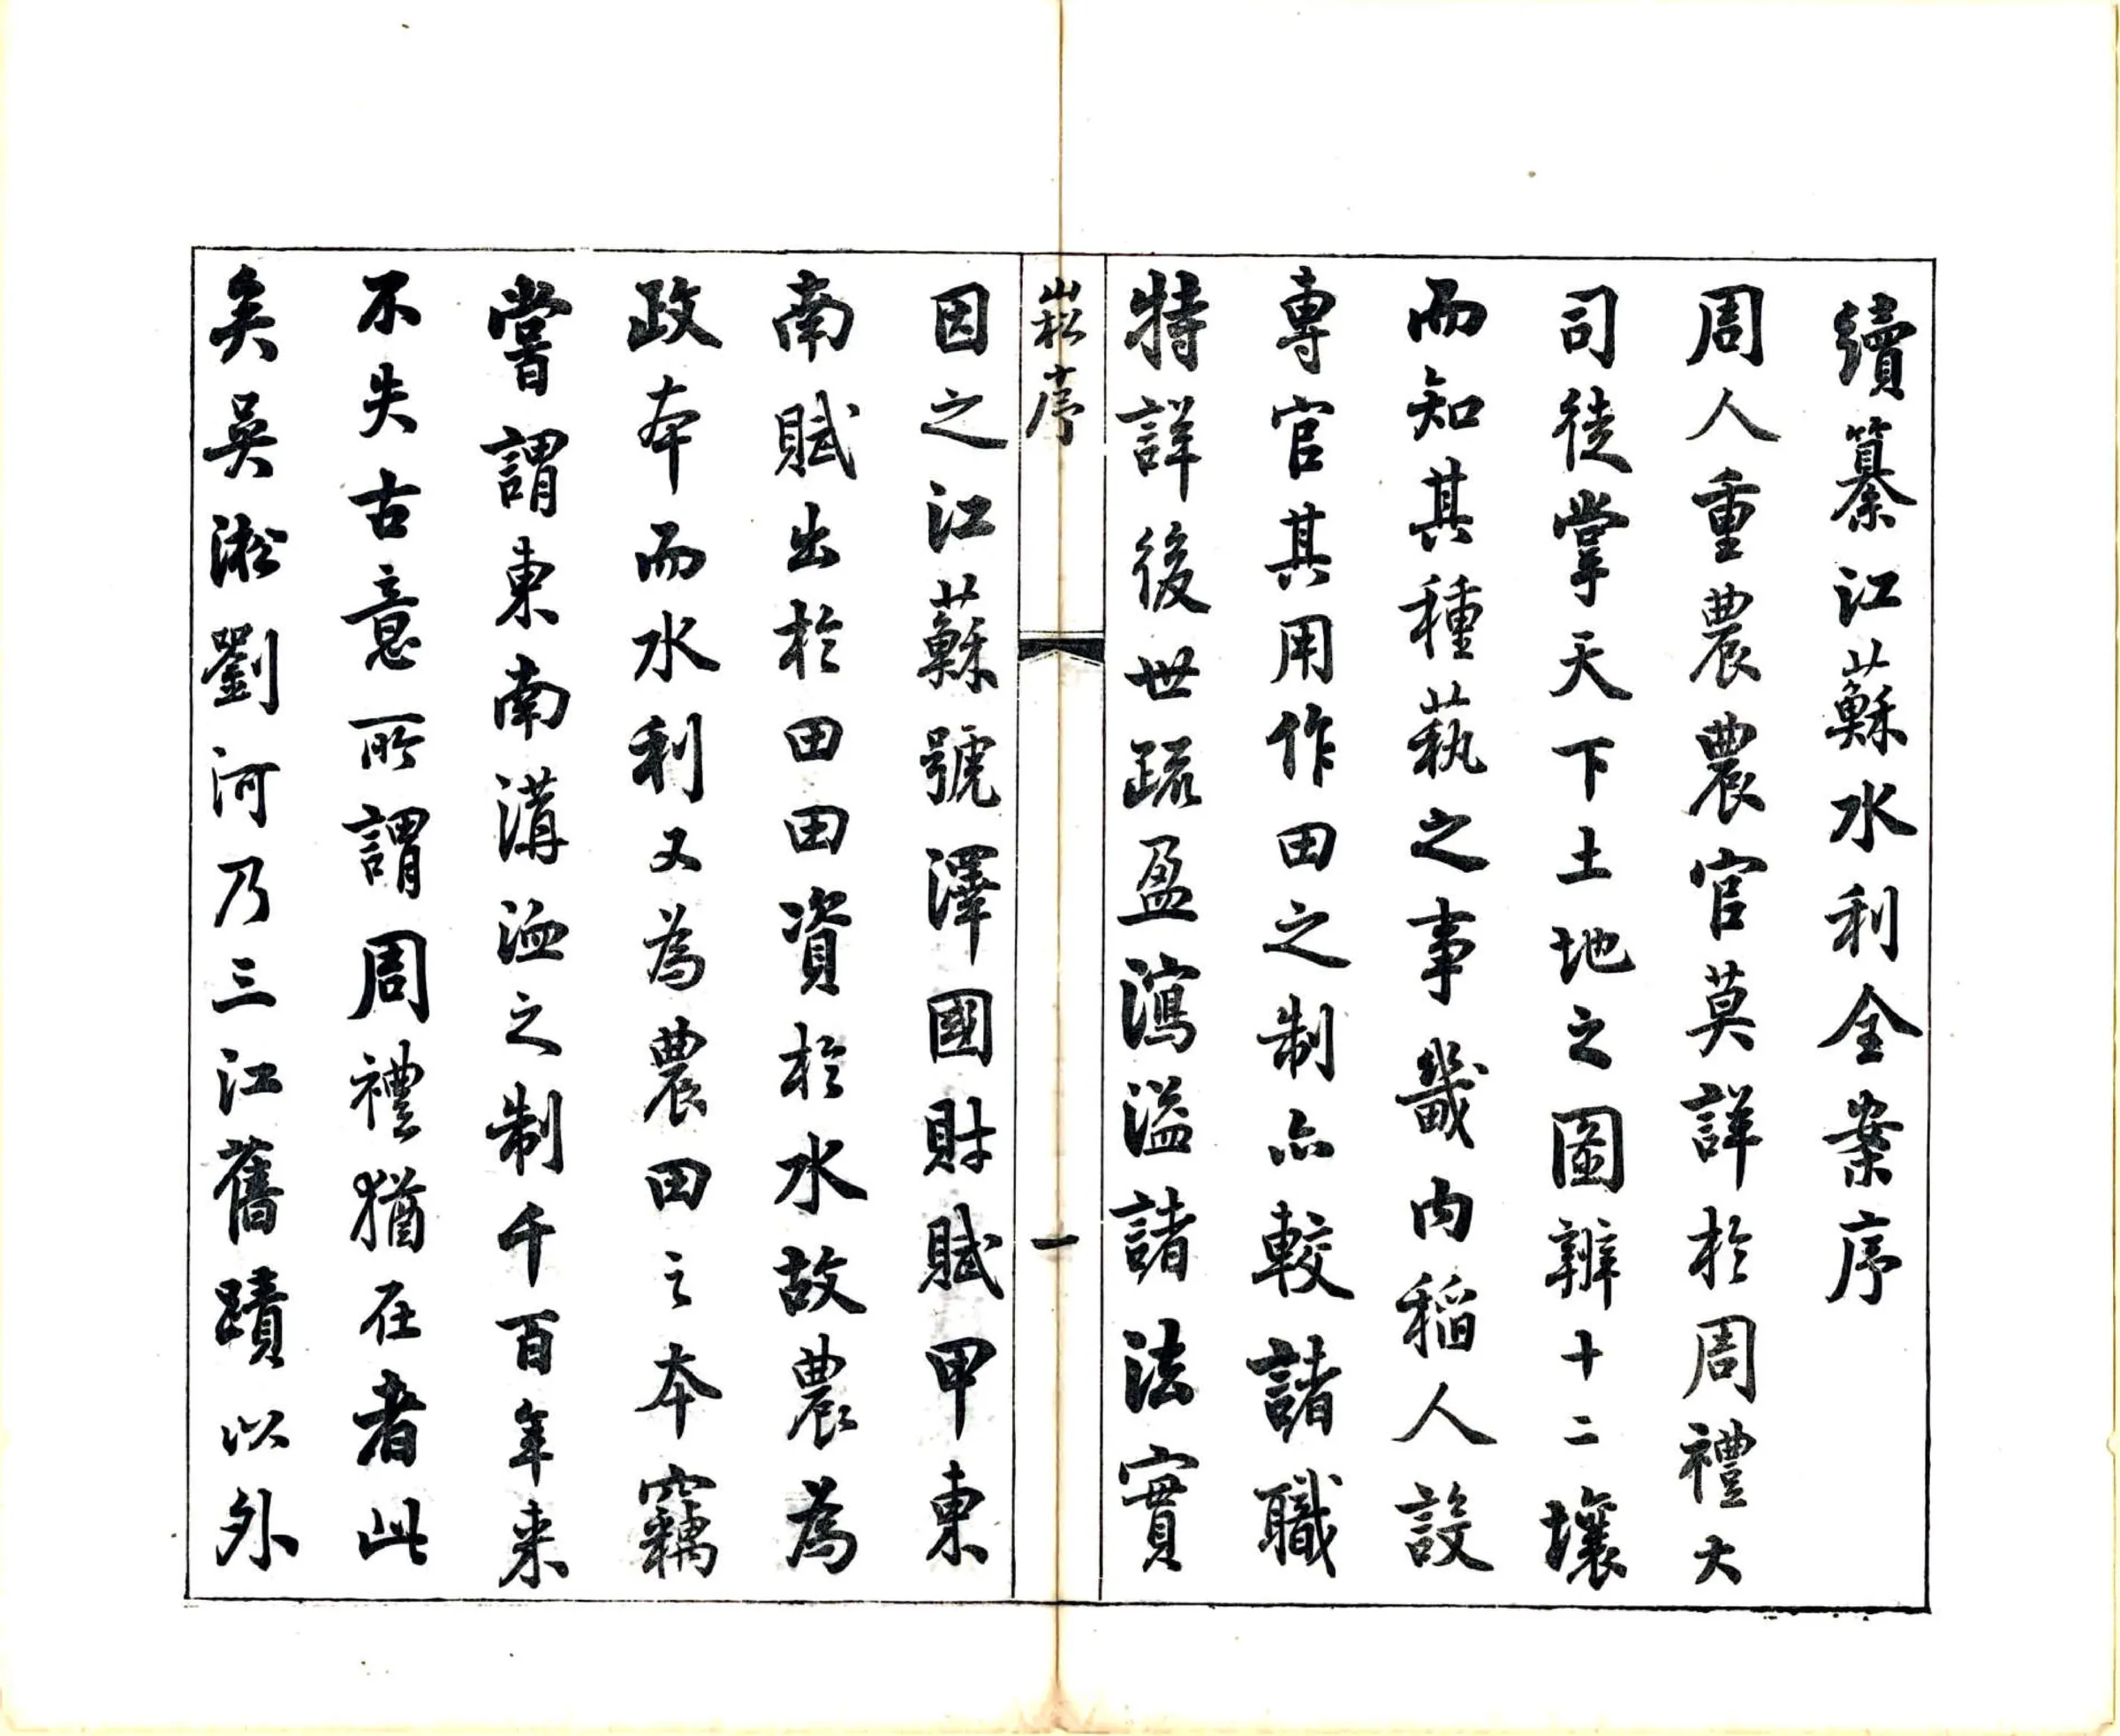 續纂江蘇水利全案序
周人重農農官莫詳於周禮大
司徒掌天下土地之圖辨十二壤
而知其種藝之事畿內稻人設
專官其用作田之制亦較諸職
特詳後世疏盈瀉溢諸法實
崧序
一
因之江蘇號澤國財賦甲東
南賦出於田田資於水故農為
政本而水利又為農田之本竊
嘗謂東南溝洫之制千百年来
不失古意所謂周禮猶在者此
矣吳淞劉河乃三江舊蹟以外